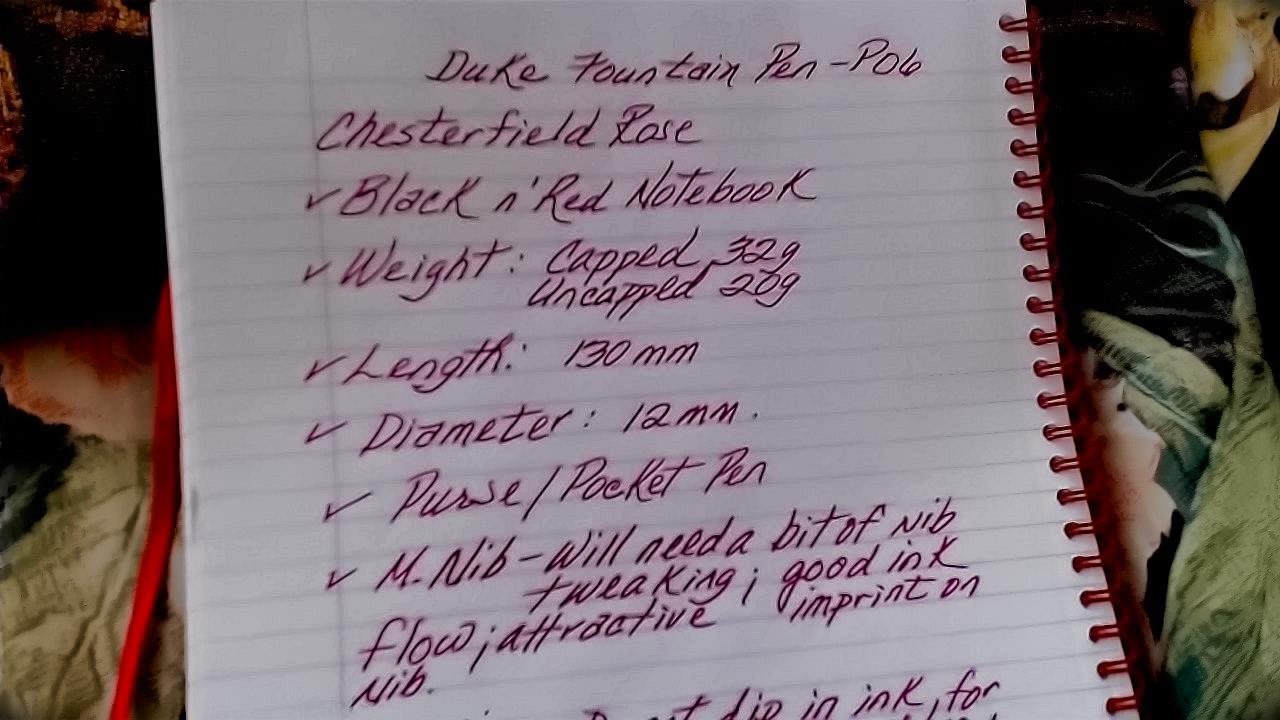 Duke Fountain Pen - P06
Chesterfield Rose
✓ Black n' Red Notebook
✓ Weight: Capped 32g
Uncapped 20g
✓ Length: 130 mm
✓ Diameter: 12 mm.
✓ Purse / Pocket Pen
✓ M. Nib - Will need a bit of nib
tweaking; good ink
flow; attractive imprint on
Nib.
dip in ink, for